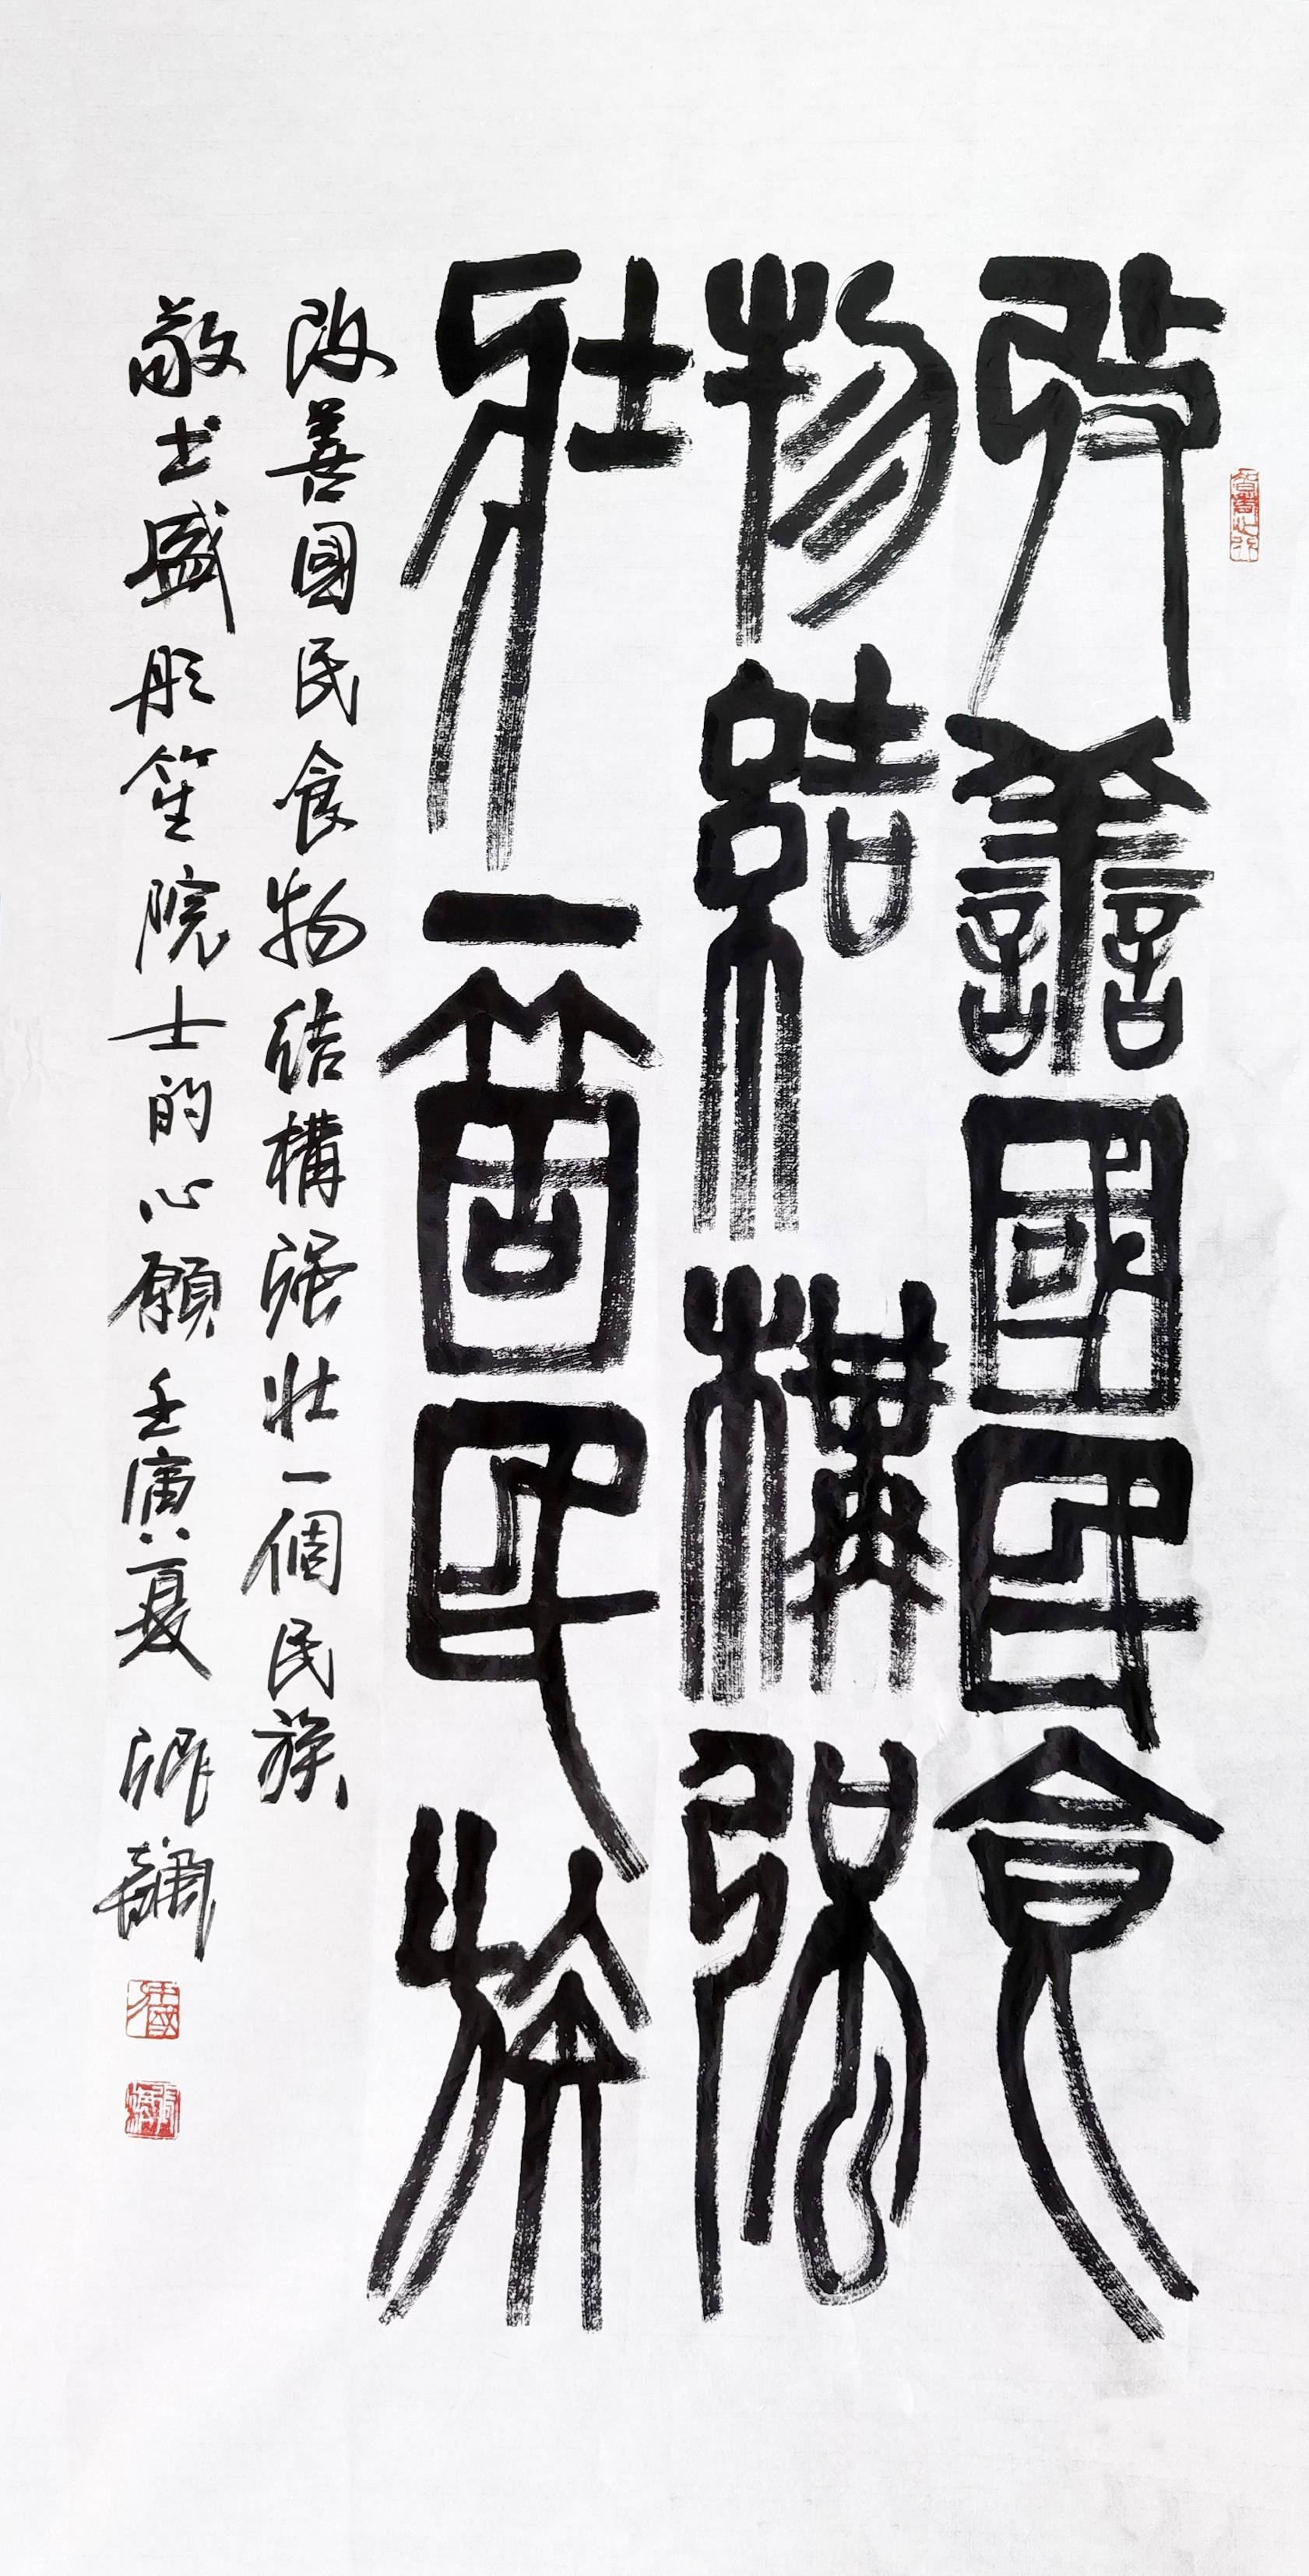 改善國民食
物結構強
壯一箇民族
改善國民食物结構强壯一個民族
敬书盛彤笙院士的心願 壬寅夏